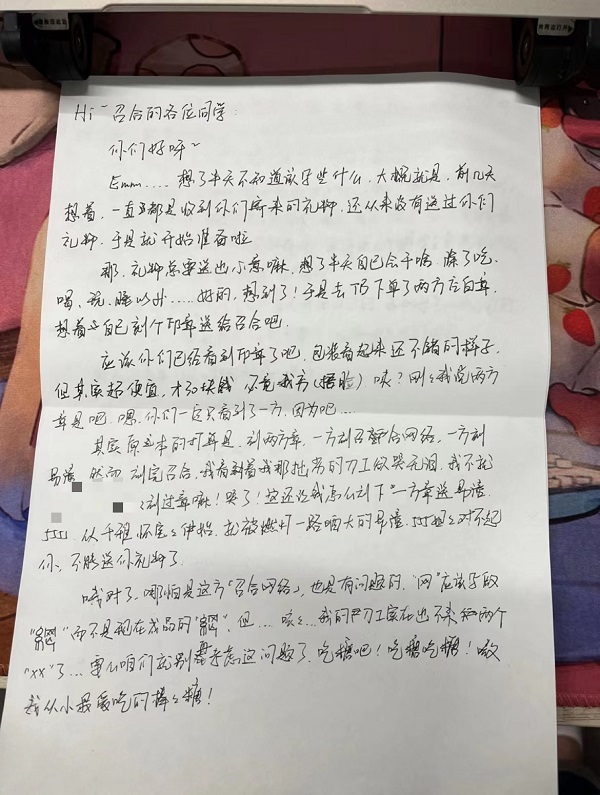 Hi~召合的各位同学:
你们好呀~
Emm.... 想了半天不知道该写些什么. 大概就是, 前几天
想着, 一直都是收到你们寄来的礼物, 还从来没有送过你们
礼物. 于是就开始准备啦
那, 礼物总要送出心意嘛, 想了半天自己会干啥, 除了吃、
喝、说、睡以外......好的, 想到了! 于是去TB下单了两方空白章,
想着自己刻个印章送给召合吧.
应该你们已经看到印章了吧, 包装看起来还不错的样子,
但其实超便宜, 才30块钱 咦? 刚刚我说两方
章是吧, 嘿, 你们一定只看到了一方, 因为吧....
其实原本的打算是, 刻两方章, 一方刻召合网络, 一方刻
易涪 然而 刻完召合, 我看着我那拙劣的刀工欲哭无泪, 我不就
刻过章嘛! 哭了! 这还让我怎么刻下一方章送易涪.
从千禧怀宝宝伊始, 就被燃叶一路哺大的易涪, 妈妈对不起
你, 不能送你礼物了.
哦对了, 哪怕是这方「召合网络」, 也是有问题的. "网"应该写取
而不是现在成品的 但... 咳咳... 我的刀工实在也不来和两个
"xx"了... 要么咱们就别在乎这问题了, 吃糖吧! 吃糖吃糖!
我从小最爱吃的棒棒糖!